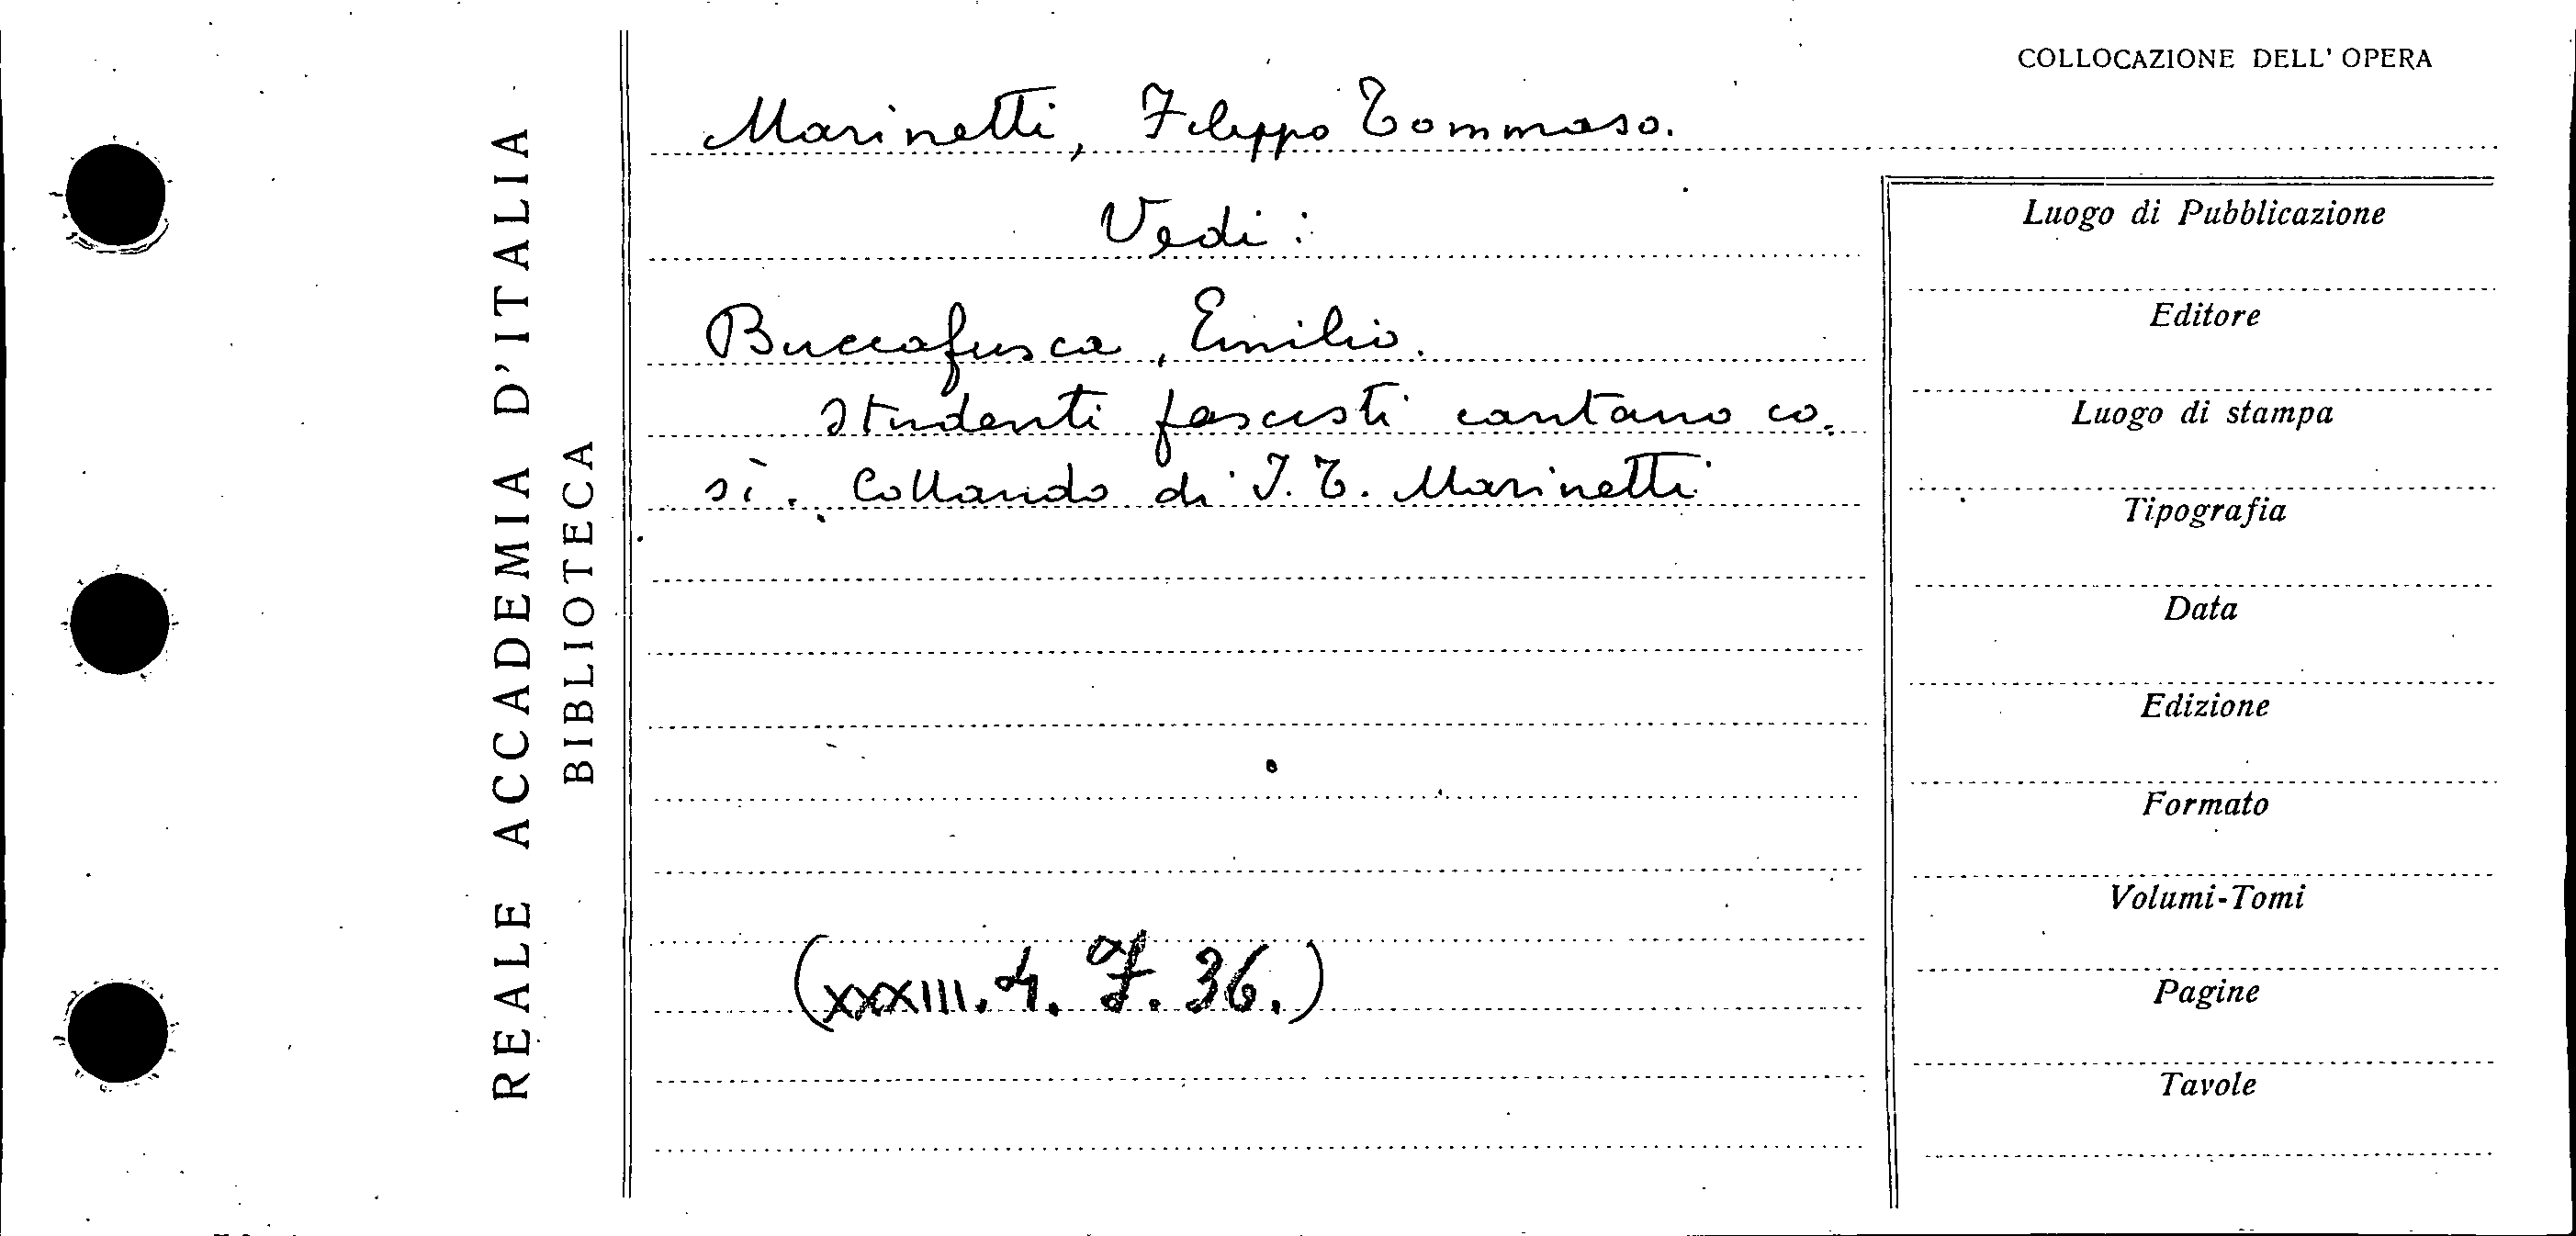 REALE ACCADEMIA D'ITALIA
BIBLIOTECA
COLLOCAZIONE DELL' OPERA
Marinetti, Filippo Tommaso.
Vedi:
Buccafusca, Emilio.
Studenti fascisti cantano co-
sì. Collaudo di F. T. Marinetti
(XXXIII. 4. F. 36.)
Luogo di Pubblicazione
Editore
Luogo di stampa
Tipografia
Data
Edizione
Formato
Volumi-Tomi
Pagine
Tavole